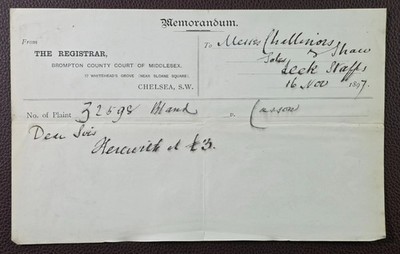 Memorandum.
From
To Messrs Challinors & Shaw
THE REGISTRAR,
Solrs
BROMPTON COUNTY COURT OF MIDDLESEX,
Leek Staffs
17 WHITEHEAD'S GROVE (NEAR SLOANE SQUARE)
CHELSEA, S.W.
16 Nov 1897.
No. of Plaint Z 2598 Bland v. Casson
Dear Sirs
Herewith £3.